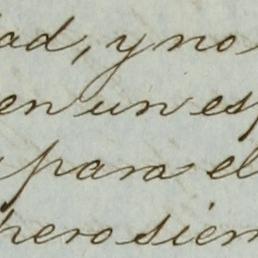 ad, y no
en un es
para el
pero siem